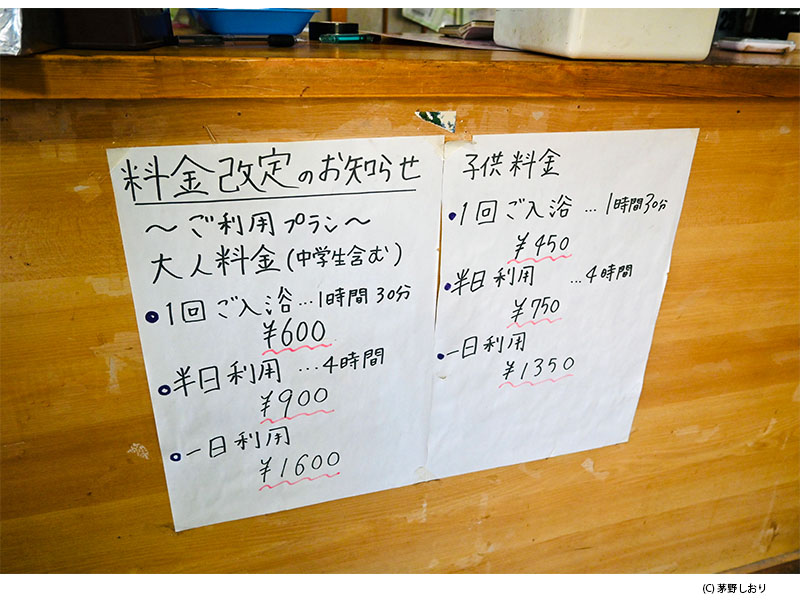 料金改定のお知らせ
〜ご利用プラン〜
大人料金(中学生含む)
●1回ご入浴…1時間30分
¥600
●半日利用…4時間
¥900
●一日利用
¥1600
子供料金
●1回ご入浴…1時間30分
¥450
●半日利用…4時間
¥750
●一日利用
¥1350
(C) 茅野しおり